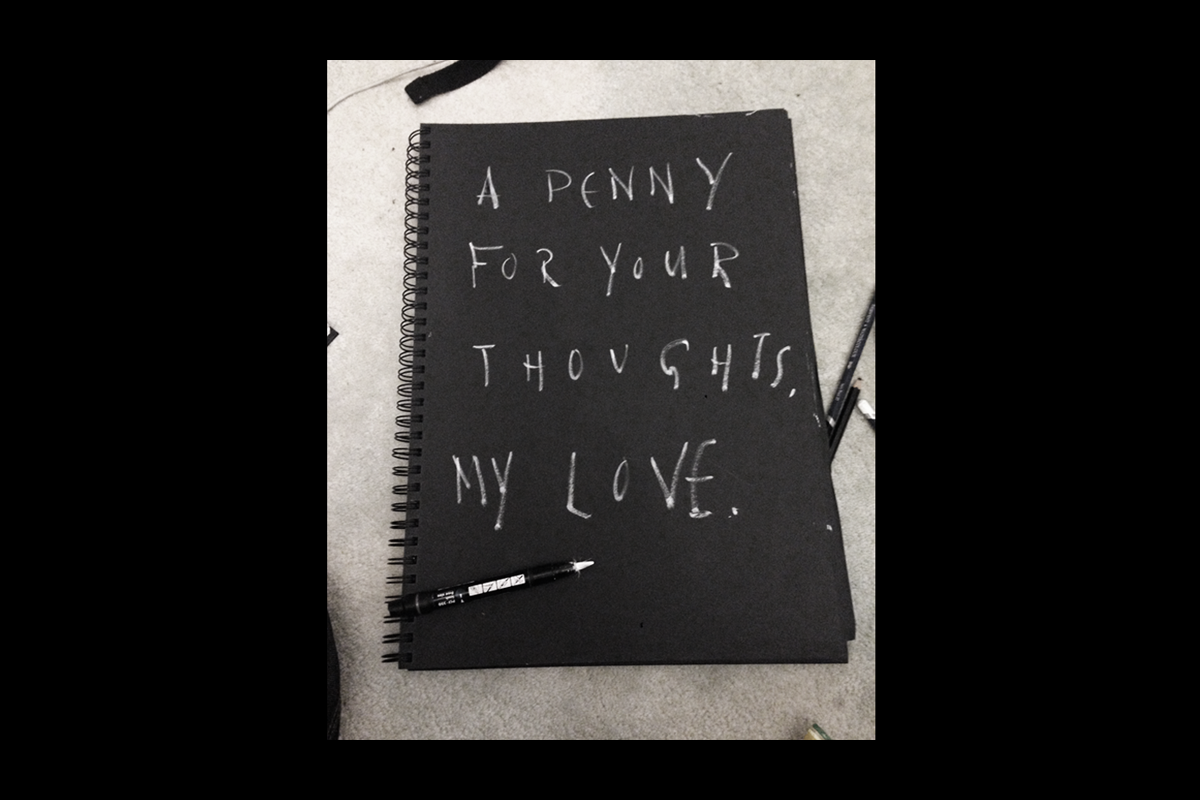 A PENNY
FOR YOUR
THOUGHTS,
MY LOVE.